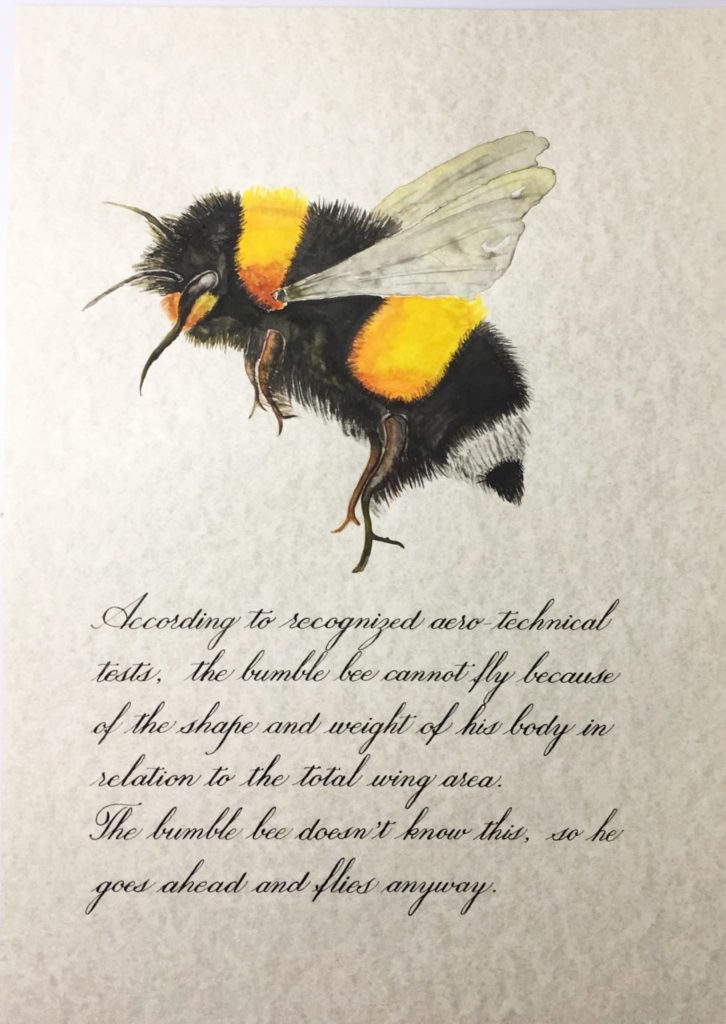 According to recognized aero-technical
tests, the bumble bee cannot fly because
of the shape and weight of his body in
relation to the total wing area.
The bumble bee doesn't know this, so he
goes ahead and flies anyway.